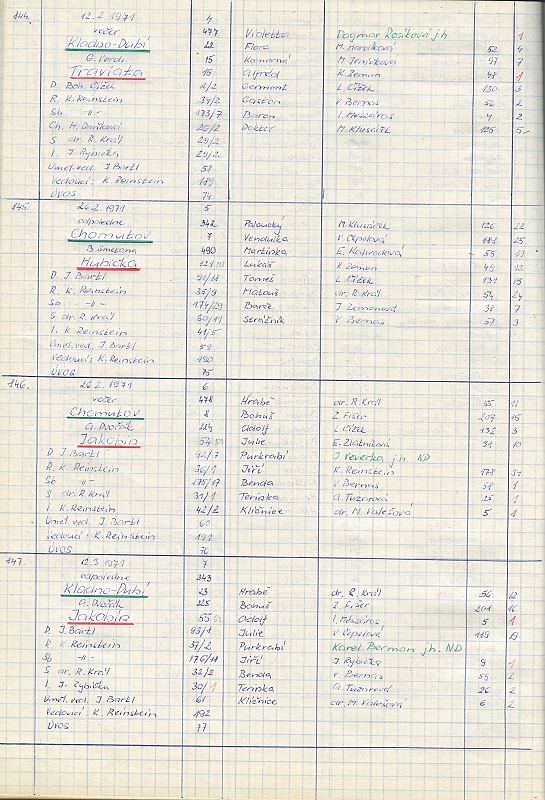 144. 12.2.1971 4
večer 477 Violetta Dagmar Rosíková j.h. 1
Kladno-Dubí 22 Flora M. Horálková 52 4
G. Verdi 15 Komorná M. Jeníčková 97 7
Traviata 15 Alfréd K. Zeman 48 1
D. Boh. Čížek Germont L. Čížek 130 5
R. K. Reinstein 34/2 Gaston V. Bernas 56 2
Sb. -"- 173/7 Baron I. Mészáros 4 2
Ch. H. Daňková 26/2 Doktor M. Klusáček 125 5
S dr. R. Král 29/2
I. J. Rybička 29/2
Uměl. ved. J. Bartl 58
Vedoucí: K. Reinstein 189
ÚVOS 74
145. 26.2.1971 5
odpoledne 342 Paloucký M. Klusáček 126 22
Chomutov 7 Vendulka V. Čepelová 25
B. Smetana 490 Martinka 55
Hubička 121 Lukáš K. Zeman 49 12
D. J. Bartl 91/18 Tomeš L. Čížek 131 15
R. K. Reinstein 35/9 Matouš dr. R. Král 54 24
Sb. -"- 174/29 Barče J. Zemanová 38 7
S dr. R. Král 30/11 Strážník V. Bernas 57 3
I. K. Reinstein 41/5
Uměl. ved. J. Bartl 59
Vedoucí: K. Reinstein 190
ÚVOS 75
146. 26.2.1971 6
večer 478 Hrabě dr. R. Král 55 11
Chomutov 8 Bohuš Z. Fišer 207 15
A. Dvořák 224 Adolf L. Čížek 132 3
Jakobín 54 Julie E. Zlatníková 31 10
D J. Bartl 92/7 Purkrabí J. Veverka j.h. ND
R. K. Reinstein 36/1 Jiří K. Reinstein 178 31
Sb -"- 175/17 Benda V. Bernas 58 1
S dr. R. Král 31/1 Terinka A. Tuzarová 25 1
I. K. Reinstein 42/2 Klíčnice dr. M. Valešová 5 1
Uměl. ved. J. Bartl 60
Vedoucí: K. Reinstein 191
ÚVOS 76
147. 12.3.1971 7
odpoledne 343
Kladno-Dubí 23 Hrabě dr. R. Král 56 12
A. Dvořák 225 Bohuš Z. Fišer 16
Jakobín 55 Adolf I. Mészáros 5 1
D. J. Bartl 93/1 Julie V. Čepelová 119 19
R K Reinstein 37/2 Purkrabí Karel Berman j.h. ND
Sb -"- 176/18 Jiří J. Rybička 9 1
S dr. R. Král 32/2 Benda V. Bernas 59 2
I. J. Rybička 30/1 Terinka A. Tuzarová 26 2
Uměl. ved. J. Bartl 61 Klíčnice dr. M. Valešová 6 2
Vedoucí: K. Reinstein 192
ÚVOS 77